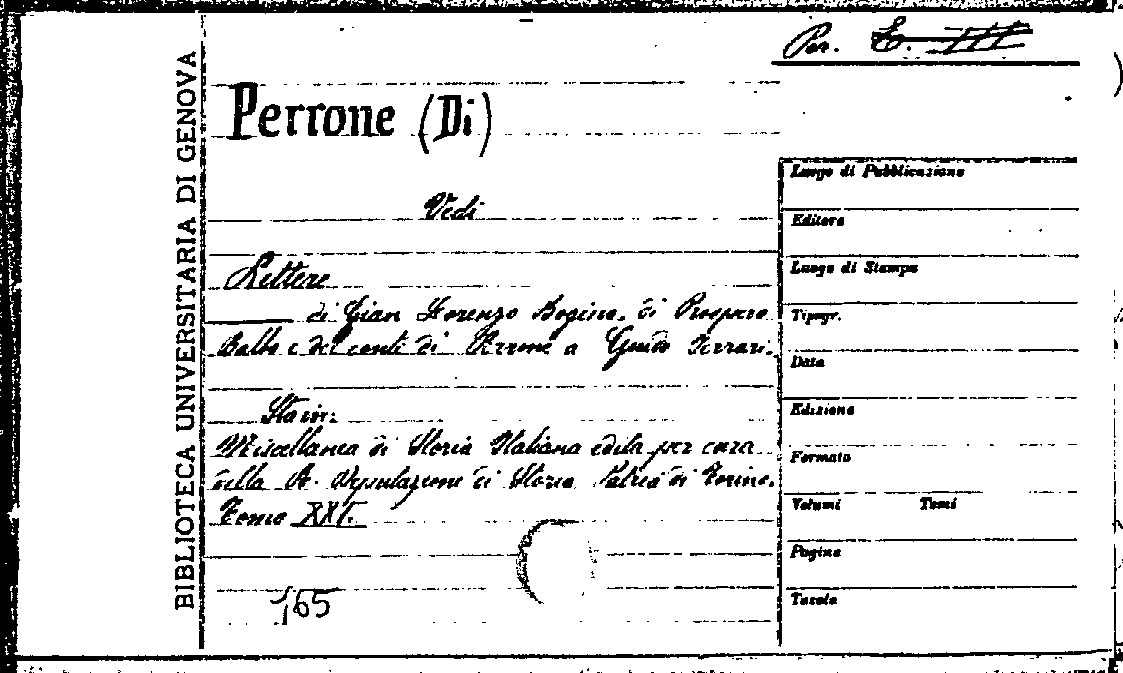 Per. E. III
BIBLIOTECA UNIVERSITARIA DI GENOVA
Perrone (Di)
Vedi
Lettere
di Gian Lorenzo Bogino, di Prospero
Balbo e dei conti di Perrone a Guido Ferrari.
Sta in:
Miscellanea di Storia Italiana edita per cura
della R. Deputazione di Storia Patria di Torino.
Tomo XXI.
165
Luogo di Pubblicazione
Editore
Luogo di Stampa
Tipogr.
Data
Edizione
Formato
Volumi Tomi
Pagine
Tavole